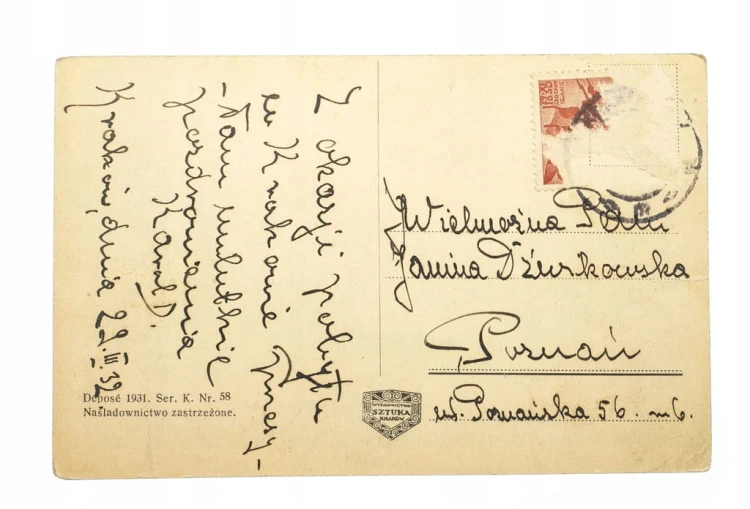 Z okazji pobytu
w Krakowie przesy-
-łam milutkie
pozdrowienia
Karol D.
Kraków, dnia 22.III.32.
Deposé 1931. Ser. K. Nr. 58
Naśladownictwo zastrzeżone.
WYDAWNICTWO
SZTUKA
KRAKÓW
1830
1930
Wielmożna Pani
Janina Dżurkowska
Poznań
ul. Poznańska 56. m 6.